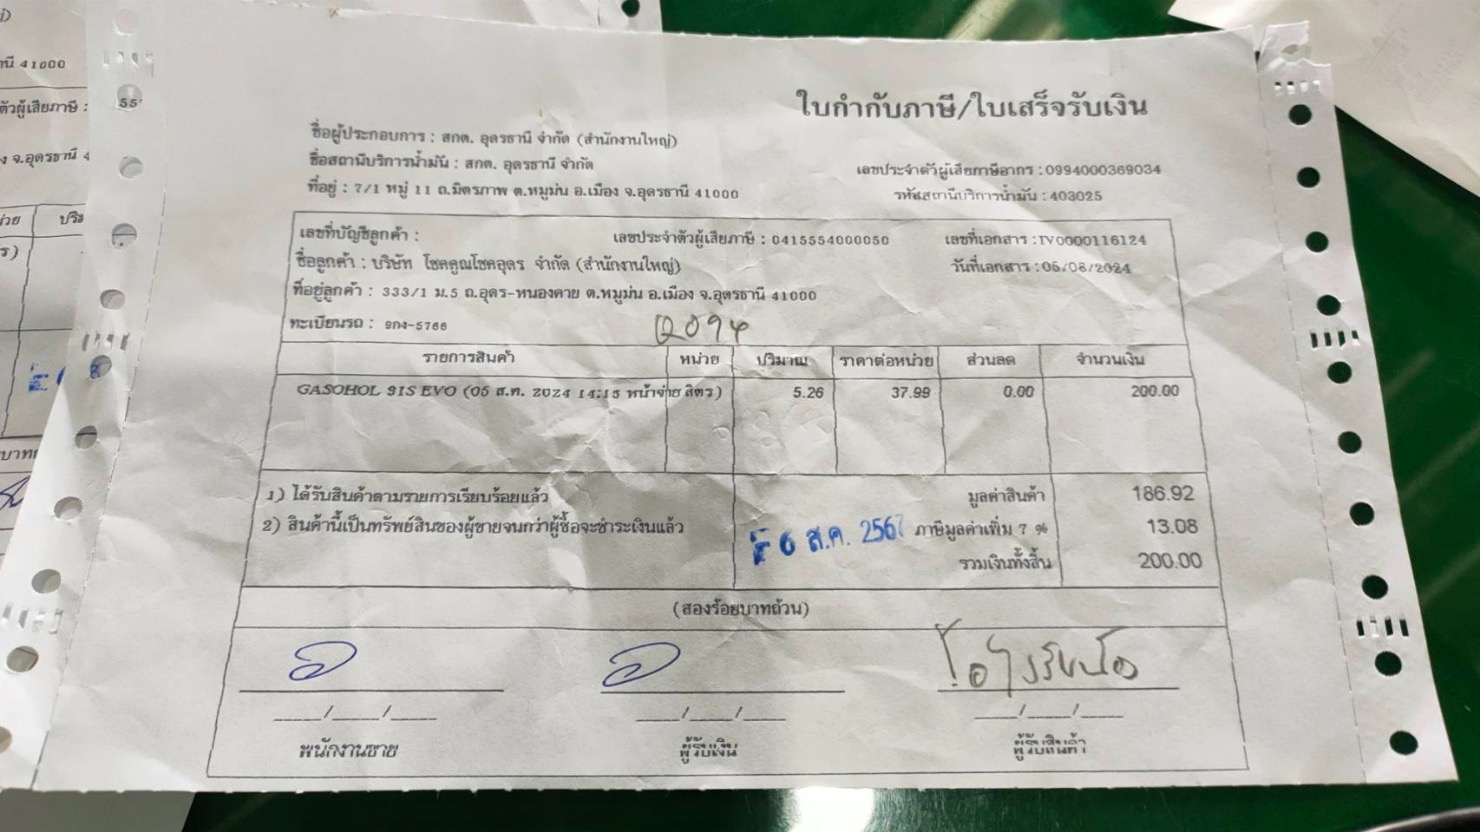 ใบกำกับภาษี/ใบเสร็จรับเงิน
ชื่อผู้ประกอบการ : สกต. อุดรธานี จำกัด (สำนักงานใหญ่)
ชื่อสถานีบริการน้ำมัน : สกต. อุดรธานี จำกัด
เลขประจำตัวผู้เสียภาษีอากร : 0994000369034
ที่อยู่ : 7/1 หมู่ 11 ถ.มิตรภาพ ต.หมูม่น อ.เมือง จ.อุดรธานี 41000
รหัสสถานีบริการน้ำมัน : 403025
เลขที่บัญชีลูกค้า : เลขประจำตัวผู้เสียภาษี : 0415554000050 เลขที่เอกสาร : IV0000116124
ชื่อลูกค้า : บริษัท โชคคูณโชคอุดร จำกัด (สำนักงานใหญ่) วันที่เอกสาร : 06/08/2024
ที่อยู่ลูกค้า : 333/1 ม.5 ถ.อุดร-หนองคาย ต.หมูม่น อ.เมือง จ.อุดรธานี 41000
ทะเบียนรถ :
รายการสินค้า หน่วย ปริมาณ ราคาต่อหน่วย ส่วนลด จำนวนเงิน
GASOHOL 91S EVO (06 ส.ค. 2024 14:15 หน้าจ่าย ลิตร) 5.26 37.99 0.00 200.00
1) ได้รับสินค้าตามรายการเรียบร้อยแล้ว มูลค่าสินค้า 186.92
2) สินค้านี้เป็นทรัพย์สินของผู้ขายจนกว่าผู้ซื้อจะชำระเงินแล้ว ภาษีมูลค่าเพิ่ม 7 % 13.08
6 ส.ค. 2567
รวมเงินทั้งสิ้น 200.00
(สองร้อยบาทถ้วน)
____/____/____ ____/____/____ ____/____/____
พนักงานขาย ผู้รับเงิน ผู้รับสินค้า